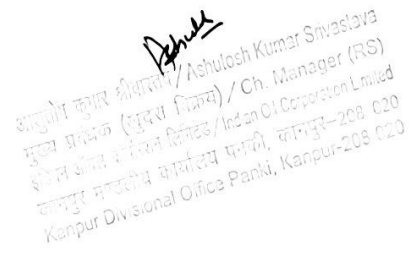 आशुतोष कुमार श्रीवास्तव / Ashutosh Kumar Srivastava
मुख्य प्रबंधक (खुदरा विक्रय) / Ch. Manager (RS)
इंडियन ऑयल कॉर्पोरेशन लिमिटेड / Indian Oil Corporation Limited
कानपुर मण्डलीय कार्यालय पनकी, कानपुर-208 020
Kanpur Divisional Office Panki, Kanpur-208 020